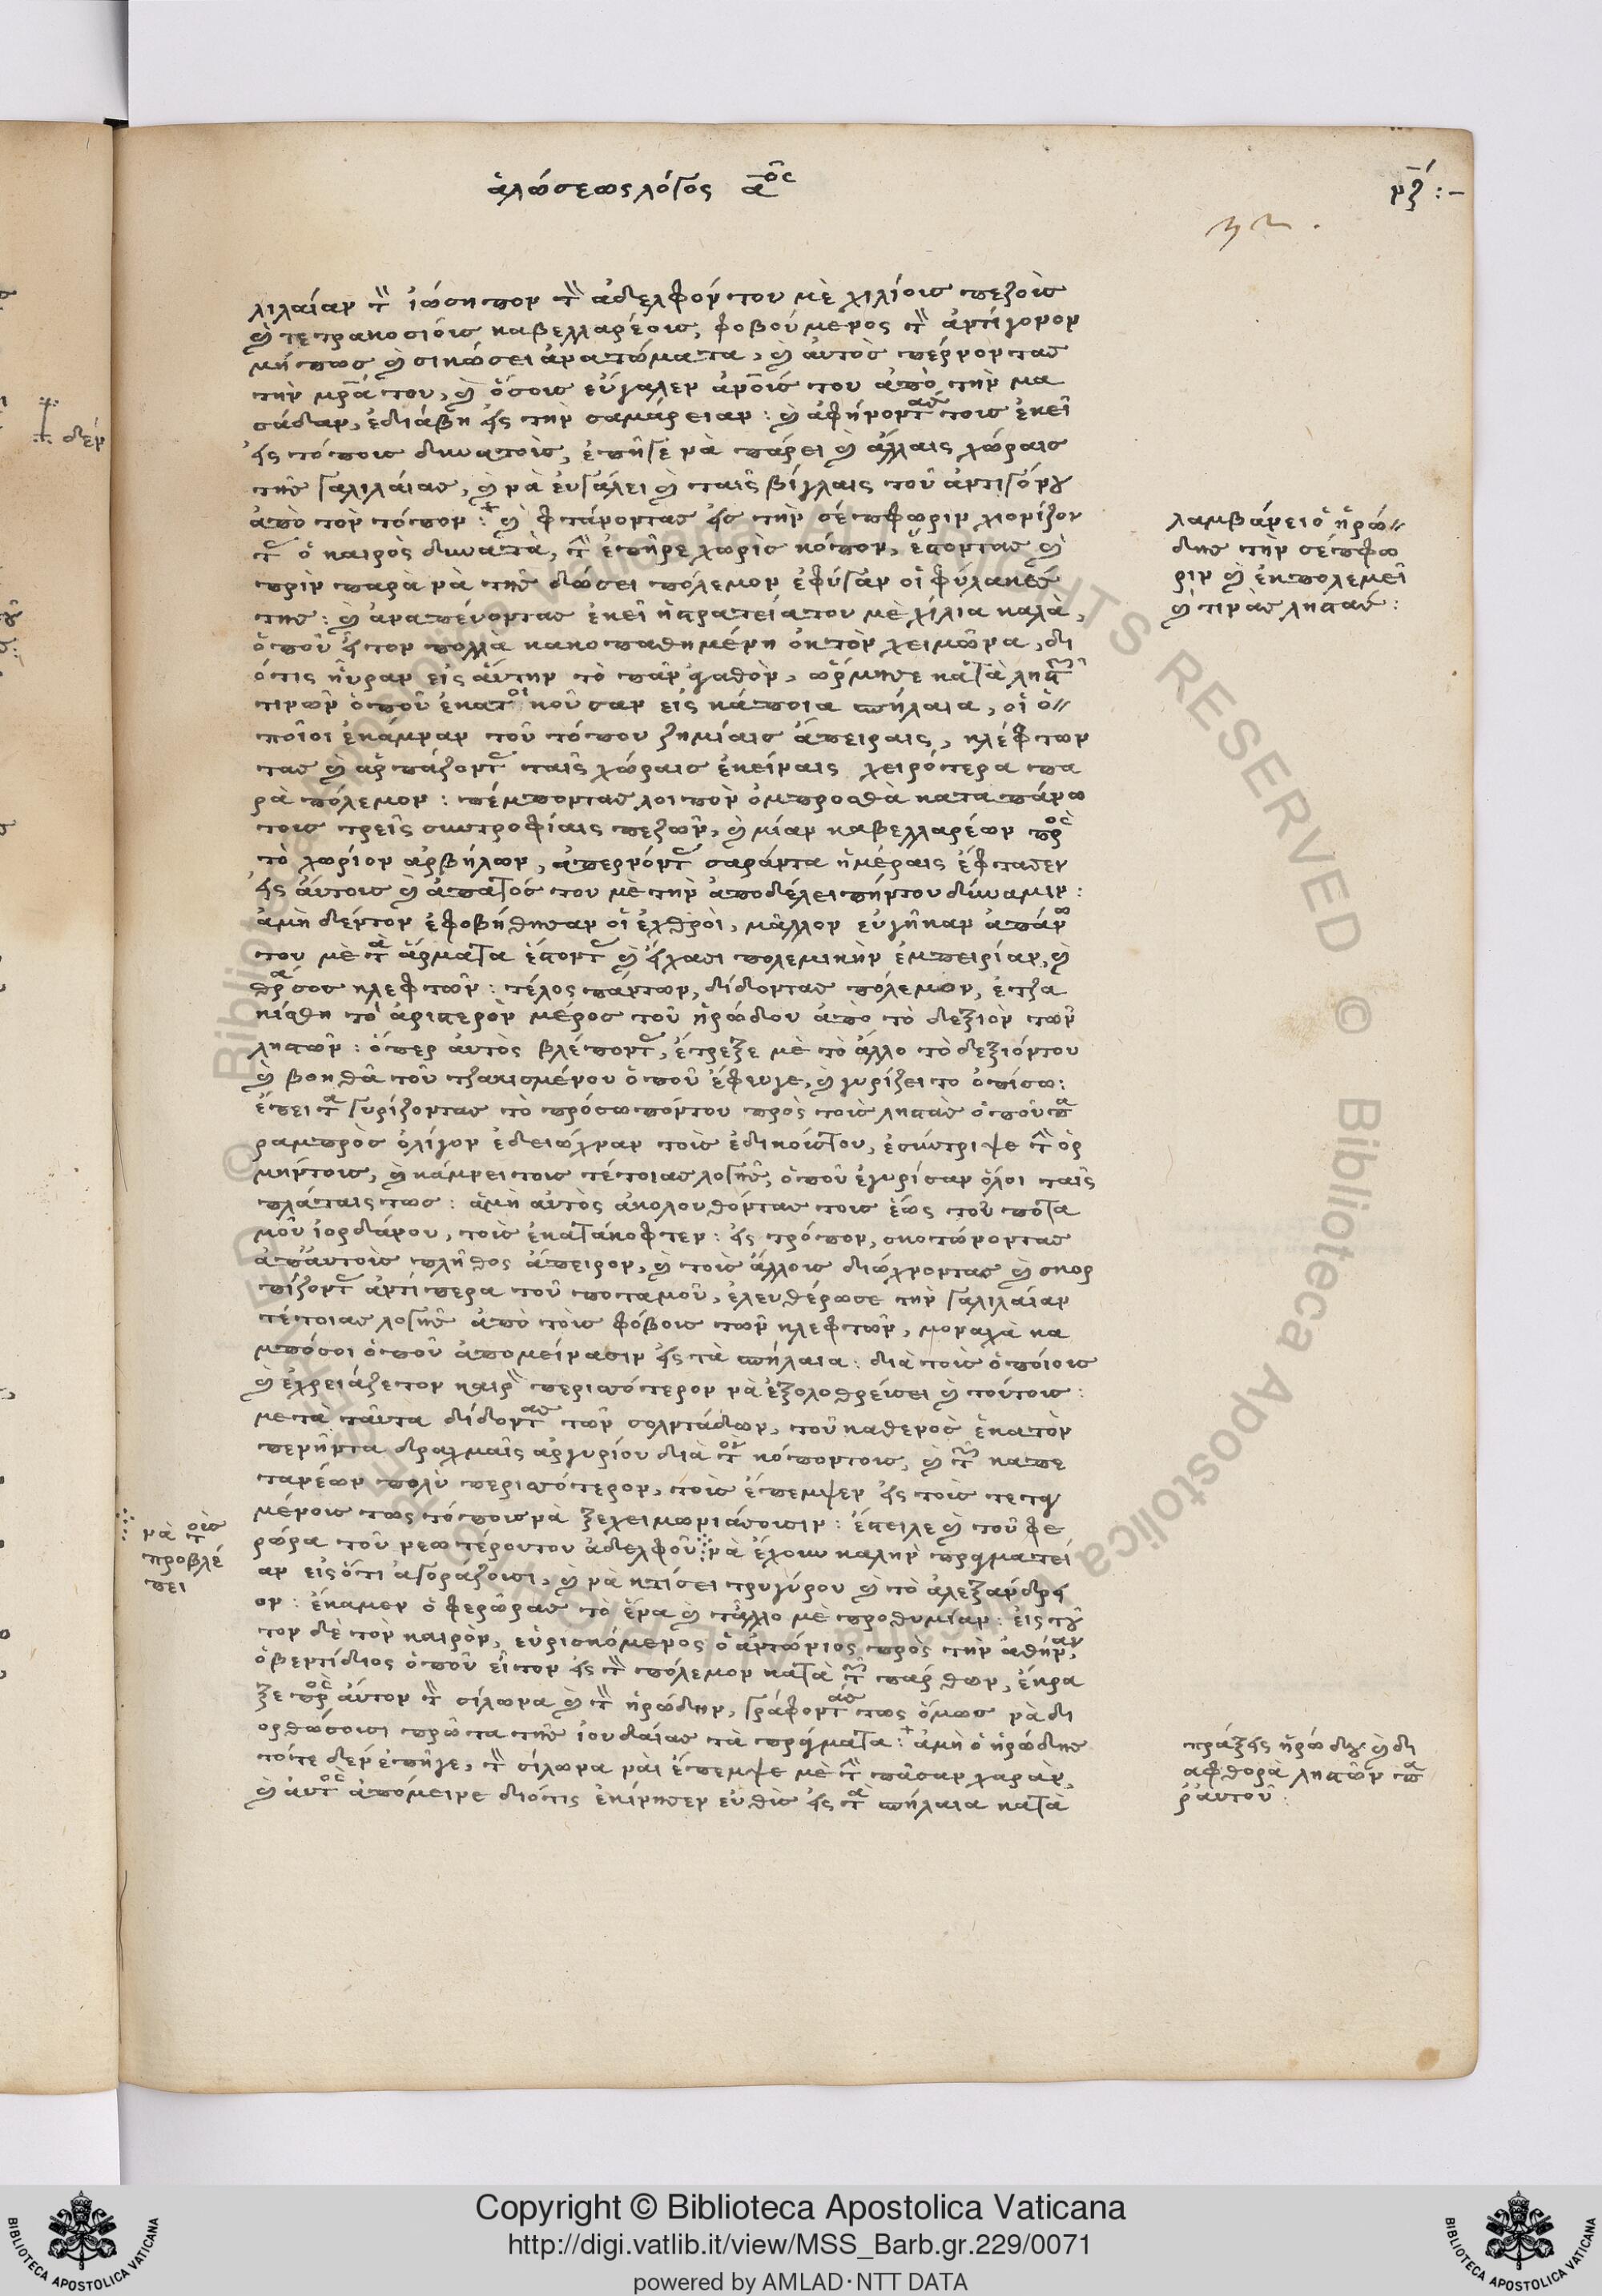 ἁλώσεως λόγος α^ος
νζ :-
λιλαίαν τὸν ἰώσηπον τὸν ἀδελφόν του μὲ χιλίοις πεζοὶς
καὶ τετρακοσίοις καβελλαρέοις, φοβούμενος τὸν ἀντίγονον
μήπως καὶ σικώσει ἀνατώματα, καὶ ἀυτὸς πέρνοντας
τὴν μρά του, καὶ ὅσοις εὔγαλεν ἀνοίς του ἀπὸ τὴν μα
σάδαν, ἐδιάβη εἰς τὴν σαμάρειαν : καὶ ἀφήνοντας τοις ἐκεῖ
εἰς τόποις δυνατοὶς, ἐπῆγε νὰ πάρει καὶ ἄλλαις χώραις
τῆς γαλιλάιας, καὶ νὰ ἐυγάλει καὶ ταῖς βίγλαις τοῦ ἀντιγόνου
ἀπὸ τὸν τόπον : καὶ φτάνοντας εἰς τὴν σέπφωριν χιονίζον
τας ὁ καιρὸς δυνατὰ, τὴν ἐπῆρε χωρὶς κόπον, ἔστοντας καὶ
πρὶν παρὰ νὰ τῆς δώσει πόλεμον ἐφύγαν οἱ φύλακές
της : καὶ αναπένοντας ἐκεῖ ἡ στρατεία του μὲ χίλια καλὰ,
ὁποῦ εἶτον πολλὰ κακοπαθημένη ὀκ τὸν χειμῶνα, δι
ότις ηὗραν εἰς ἄυτην τὸ πᾶν ἀγαθὸν, ὥρμησε κατὰ ληστῶν
τινῶν ὁποῦ ἐκατοικοῦσαν εἰς κάποια σπήλαια, οἱ ὁ-
ποῖοι ἐκάμναν τοῦ τόπου ζημίαις ἄπειραις, κλέφτων
τας καὶ ἁρπάζοντας ταῖς χώραις ἐκείναις χειρότερα πα
ρὰ πόλεμον : πέμποντας λοιπὸν ὀμπροσθὰ καταπάνω
τοις τρεῖς συντροφίαις πεζῶν, καὶ μίαν καβελλαρέων πρὸς
τὸ χωρίον ἀρβήλων, ἀπερνόντας σαράντα ἡμέραις ἔφτασεν
εἰς ἀυτοις καὶ ἀπατός του μὲ τὴν ἀποδέλειπήν του δύναμιν :
ἀμὴ δέν τον ἐφοβήθησαν οἱ ἐχθρὸι, μᾶλλον εὐγῆκαν ἀπάνω
του μὲ τὰ ἄρματα ἔστοντας καὶ εἴχασι πολεμικὴν ἐμπειρίαν, καὶ
θράσος κλεφτῶν : τέλος πάντων, δίδοντας πόλεμον, ἐτζα
κίσθη τὸ ἀριστερὸν μέρος τοῦ ἡρώδου ἀπὸ τὸ δεξιὸν τῶν
ληστῶν : ὅπερ ἀυτὸς βλέποντας, ἔτρεξε μὲ τὸ ἄλλο τὸ δεξιόν του
καὶ βοηθᾶ τοῦ τζακισμένου ὁποῦ ἔφευγε, καὶ γυρίζει το ὀπίσω :
ἔπειτα γυρίζοντας τὸ πρόσωπόν του πρὸς τοὶς ληστὰς ὁποῦ πα
ραμπρὸς ὀλίγον ἐδειώχναν τοὶς ἐδικοίς του, ἐσύντριψε τὴν ὁρ
μήν τοις, καὶ κάμνει τοις τέτοιας λογῆς, ὁποῦ ἐγυρίσαν ὅλοι ταῖς
πλάταις τως : ἀμὴ αὐτὸς ἀκολουθόντας τοις ἕως τοῦ ποτα
μοῦ ἰορδάνου, τοὶς ἐκατάκοφτεν : εἰς τρόπον, σκοτώνοντας
ἀπ' ἀυτοὶς πλῆθος ἄπειρον, καὶ τοὶς ἄλλοις διώχνοντας καὶ σκορ
πίζοντας ἀντίπερα τοῦ ποταμοῦ, ἐλευθέρωσε τὴν γαλιλαίαν
τέτοιας λογῆς ἀπὸ τὸις φόβοις τῶν κλεφτῶν, μοναχὰ κα
μπόσοι ὁποῦ ἀπομείνασιν εἰς τὰ σπήλαια : διὰ τοὶς ὁπόιοις
καὶ ἐχρειάζετον καιρὸν περισσότερον νὰ ἐξολοθρέυσει καὶ τούτοις :
μετὰ ταῦτα δίδοντας τῶν σολντάδων, τοῦ καθενὸς ἑκατὸν
πενῆντα δραχμαῖς ἀργυρίου διὰ τὸν κόπον τοις, καὶ τῶν καπε
τανέων πολὺ περισσότερον, τοὶς ἔπεμψεν εἰς τοὶς τεταγ
μένοις τως τόποις νὰ ξεχειμωνιάσουσιν : ἔστειλε καὶ τοῦ φε
ρώρα τοῦ νεωτέρου του ἀδελφοῦ νὰ ἔχουν καλὴν πραγματεί
αν εἰς ὅτι ἀγοράζουσι, καὶ νὰ κτίσει τρυγύρου καὶ τὸ ἀλεξανδρεῖ
ον : ἔκαμεν ὁ φερῶρας τὸ ἕνα καὶ τἄλλο μὲ προθυμίαν : εἰς τοῦ
τον δὲ τὸν καιρὸν, εὑρισκόμενος ὁ ἀντώνιος πρὸς τὴν ἀθήναν,
ὁ βεντίδιος ὁποῦ εἶτον εἰς τὸν πόλεμον κατὰ τῶν πάρθων, ἔκρα
ξε πρὸς ἀυτον τὸν σίλωνα καὶ τὸν ἡρώδην, γράφοντάς τως ὅμως νὰ δι
ορθώσουσι πρῶτα τῆς ἰουδαίας τὰ πράγματα : ἀμὴ ὁ ἡρώδης
τότε δὲν ἐπῆγε, τὸν σίλωνα νὰι ἔπεμψε μὲ τὴν πᾶσαν χαρὰν,
καὶ ἀυτὸς ἀπόμεινε διότις ἐκίνησεν εὐθὶς εἰς τὰ σπήλαια κατὰ
λαμβάνει ὁ ἡρώ-
δης τὴν σέπφω
ριν καὶ ἐκπολεμεῖ
καὶ τινὰς ληστάς :
νὰ τοὶς
προβλέ
πει
πράξεις ἡρώδου καὶ δι
αφθορὰ ληστῶν πα
ρ' ἀυτοῦ :
δέν
© Biblioteca Apostolica Vaticana ALL RIGHTS RESERVED
BIBLIOTECA APOSTOLICA VATICANA
Copyright © Biblioteca Apostolica Vaticana
http://digi.vatlib.it/view/MSS_Barb.gr.229/0071
powered by AMLAD·NTT DATA
BIBLIOTECA APOSTOLICA VATICANA